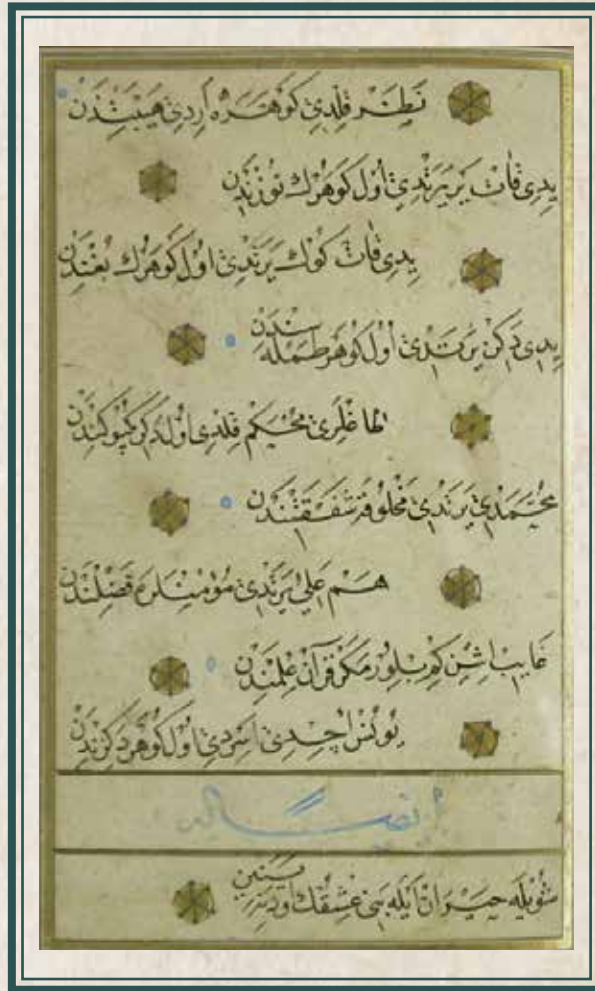 نظر قلدى كوهره اردى هيبتندن
يدى قات ير يرتدى اول كوهرك نورندن
يدى قات كوك يرتدى اول كوهرك بغندن
يدى دكز يرتدى اول كوهر طمله سندن
طاغلرى محكم قلدى اول دكز كپوكندن
محمدى يرتدى مخلوقه شفقتندن
هم علي يرتدى مومنلره فضلندن
غايب اشن كم بلور مكر قرآن علمندن
يونس اچدى اسردى اول كوهر دكزندن
ايضا له
شويله حيران ايله بنى عشقك اودنه